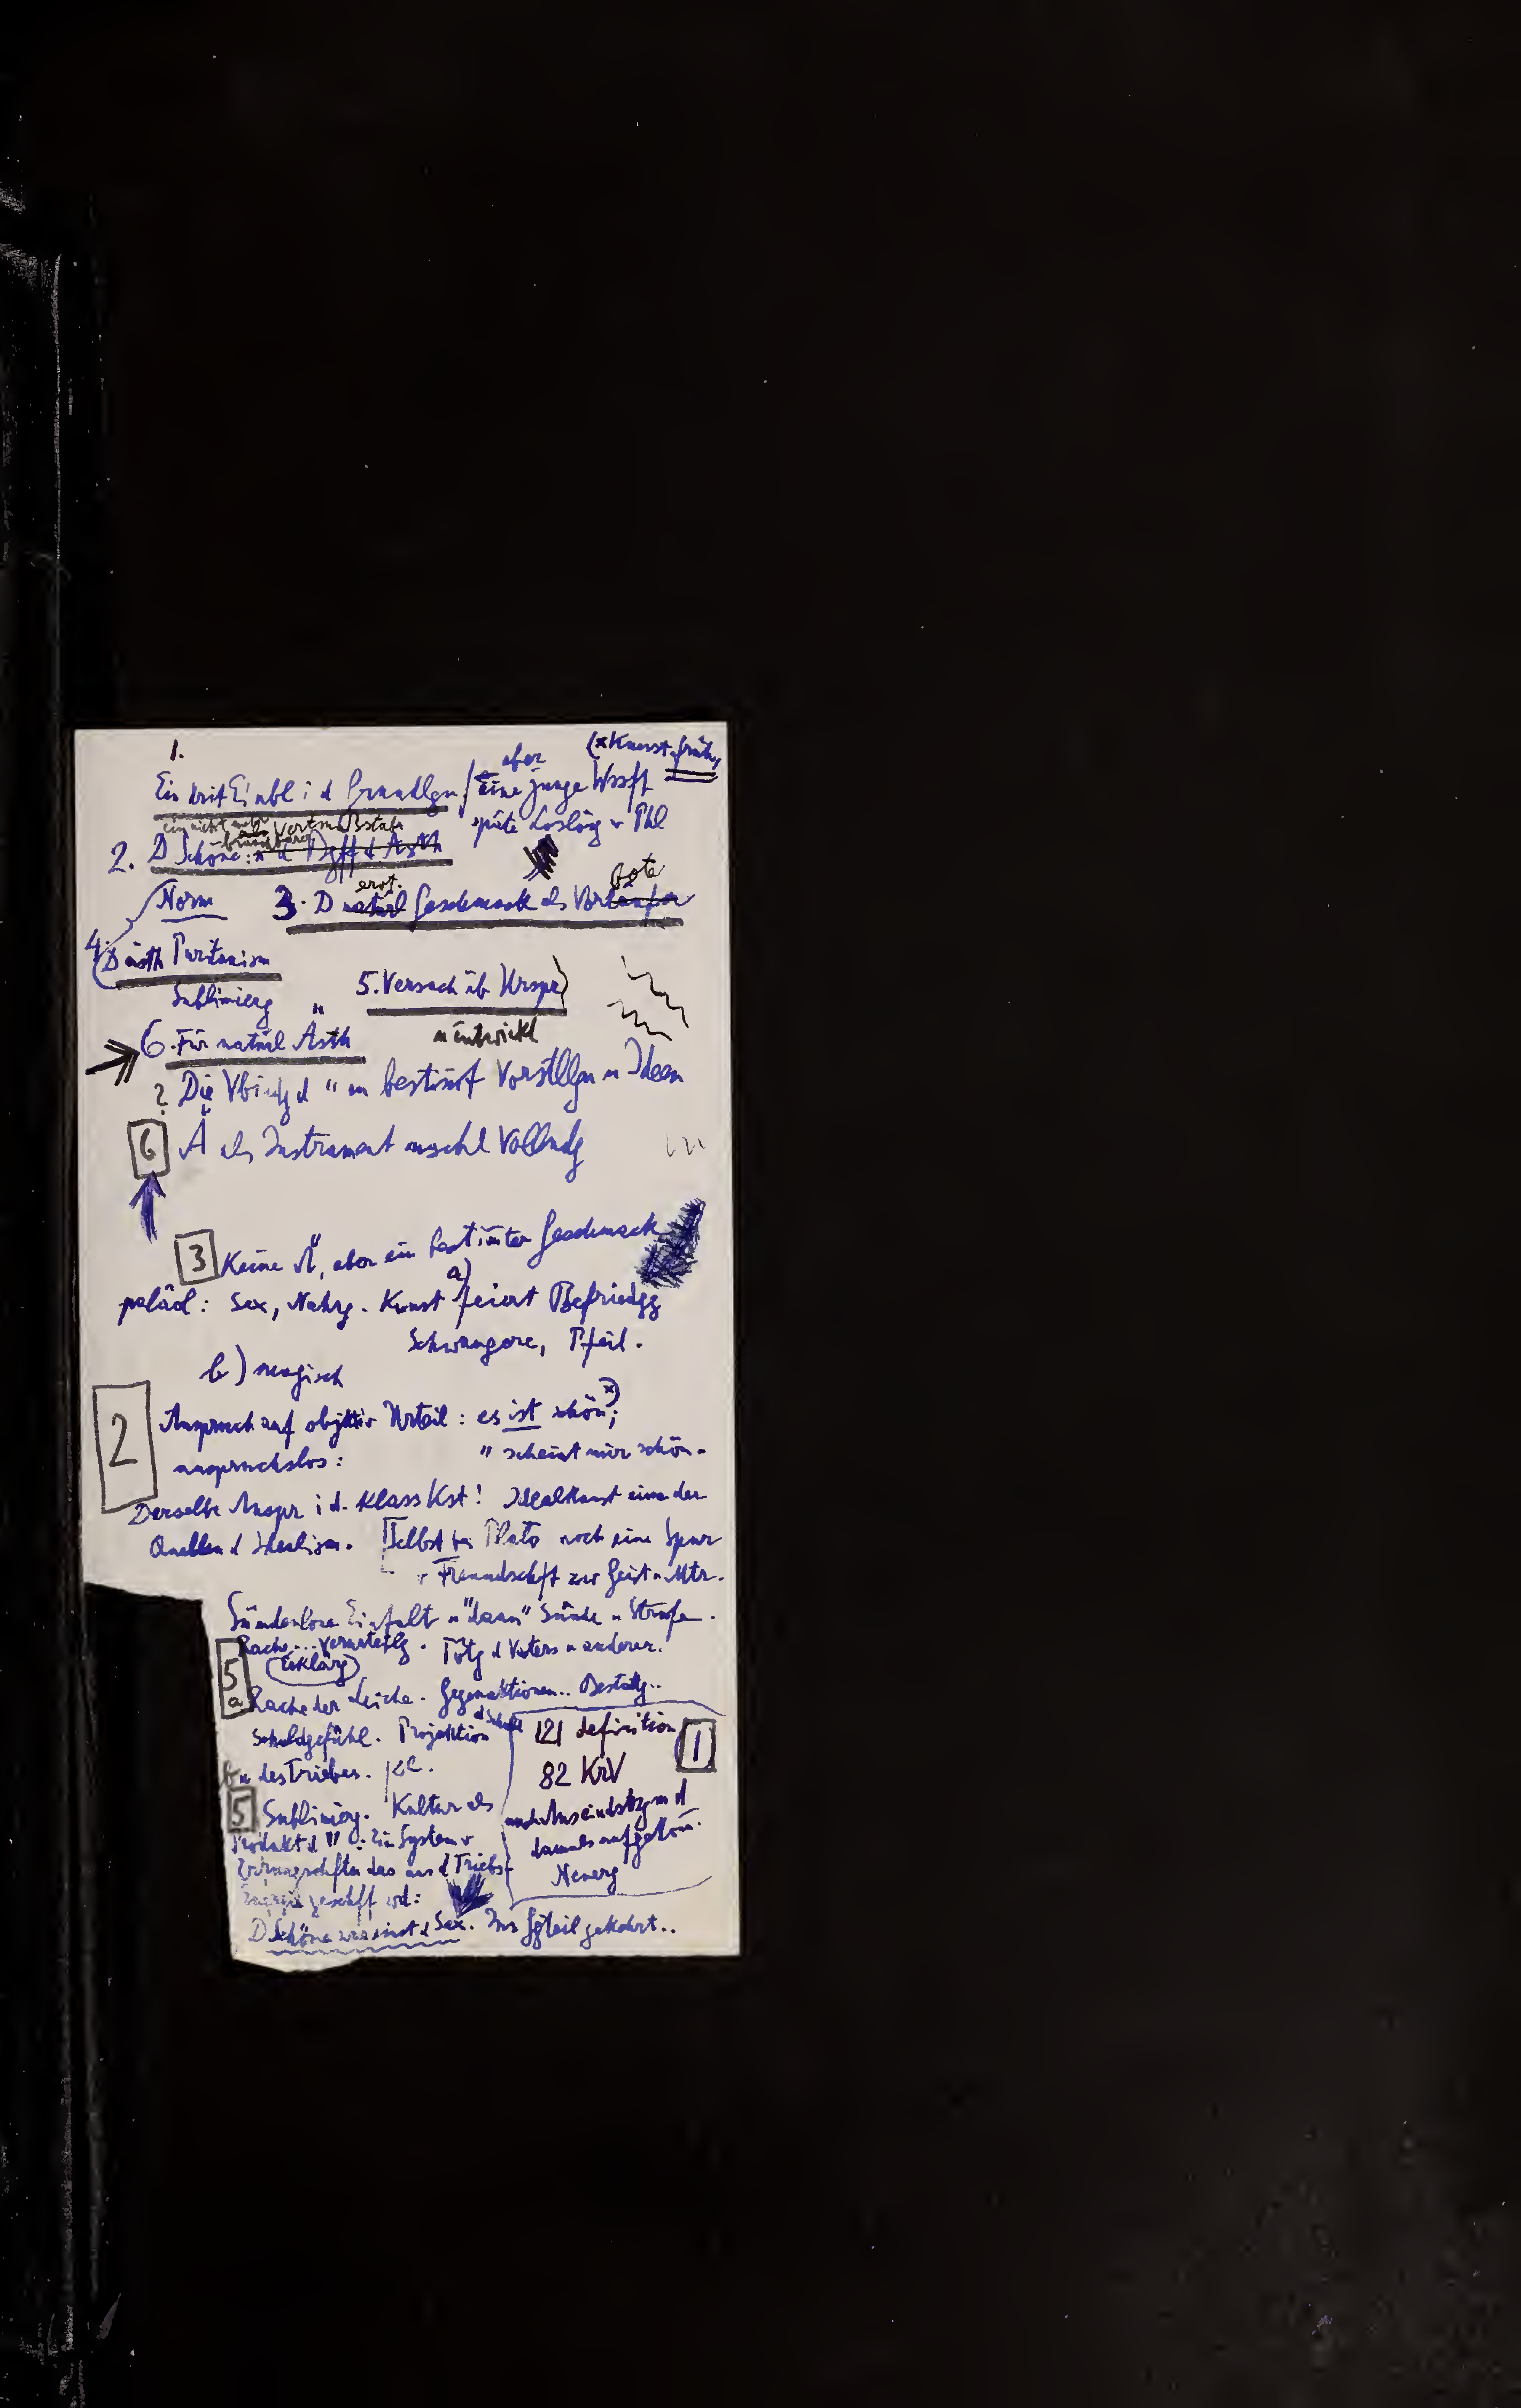 1.
(*Kunst früh,
aber
Ein krit Einbl i d Grundlgn / eine junge Wssft
ein nicht mehr Wertmaßstab
brauchbarer
späte Loslög v Phl
2. D Schöne: d Bgff d Ästh
Norm
erot. bote
3. D natürl Geschmack als Vorläufer
4. D ästh Puritanism
Sublimierg "
5. Versuch üb Urspr
u entwickl
6. Für natürl Ästh
? Die Vbindg d " m bestimt Vorstllgn u Ideen
6 Ä als Instrument mschl Vollendg
3 Keine Ä, aber ein bestimter Geschmack
paläol: Sex, Nahrg. Kunst a) feiert Befriedgg
Schwangere, Pfeil.
b) magisch
2 Anspruch auf objktiv Urteil: es ist schön; *)
anspruchslos: " scheint mir schön.
Derselbe Anspr i d. klass Kst! Idealkunst eine der
Quellen d Idealism. [Selbst bei Plato noch eine Spur
v Freundschft zw Geist u Mtr.
Sündenlose Einfalt u "dann" Sünde u Strafe.
Rache... Verurteilg. Tötg d Vaters u anderer.
(Erklärg)
5a Rache der Leiche. Gegenaktionen.. Bestätg..
Schuldgefühl. Projektion d Schuld
u des Triebes.
5 Sublimierg. Kultur als
Produkt d " : Ein System v
Errungschften das aus d Triebs-
Energie geschff wd:
D Schöne war einst d Sex. Ins Ggteil gekehrt..
1
121 definition
82 KrV
nach Auseindstzg m d
damals aufgekom.
Neuerg